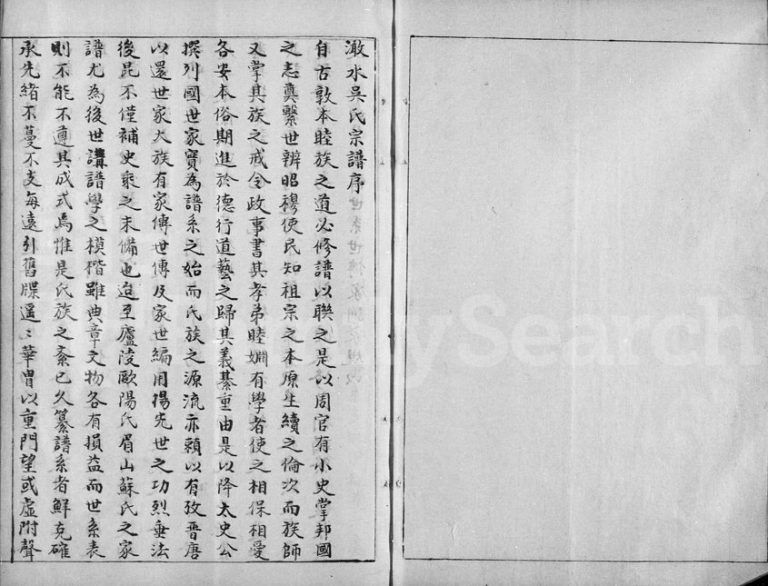 澉水吳氏宗譜序
自古敦本睦族之道必修譜以聯之是以周官有小史掌邦國
之志奠繫世辨昭穆使民知祖宗之本原生續之倫次而族師
又掌其族之戒令政事書其孝弟睦婣有學者使之相保相愛
各安本俗期進於德行道藝之歸其義綦重由是以降太史公
撰列國世家實為譜系之始而氏族之源流亦賴以有攷晉唐
以還世家大族有家傳世傳及家世編用揚先世之功烈垂法
後昆不僅補史乘之未備也迨至廬陵歐陽氏眉山蘇氏之家
譜尤為後世講譜學之模楷雖典章文物各有損益而世系表
則不能不遵其成式焉惟是氏族之紊已久纂譜系者鮮克確
承先緒不蔓不支每遠引舊牒遥:華冑以重門望或虛附聲
Search